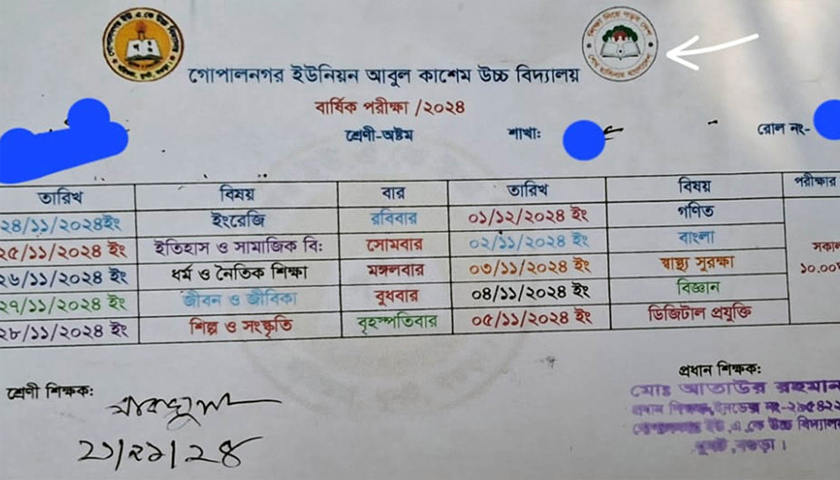 গোপালনগর ইউনিয়ন আবুল কাশেম উচ্চ বিদ্যালয়
বার্ষিক পরীক্ষা /২০২৪
শ্রেণী-অষ্টম শাখা: রোল নং-
তারিখ বিষয় বার তারিখ বিষয় পরীক্ষার
২৪/১১/২০২৪ইং ইংরেজি রবিবার ০১/১২/২০২৪ ইং গণিত
২৫/১১/২০২৪ ইং ইতিহাস ও সামাজিক বি: সোমবার ০২/১১/২০২৪ ইং বাংলা সকাল
২৬/১১/২০২৪ ইং ধর্ম ও নৈতিক শিক্ষা মঙ্গলবার ০৩/১১/২০২৪ ইং স্বাস্থ্য সুরক্ষা ১০.০০
২৭/১১/২০২৪ ইং জীবন ও জীবিকা বুধবার ০৪/১১/২০২৪ ইং বিজ্ঞান
২৮/১১/২০২৪ ইং শিল্প ও সংস্কৃতি বৃহস্পতিবার ০৫/১১/২০২৪ ইং ডিজিটাল প্রযুক্তি
শ্রেণী শিক্ষক: প্রধান শিক্ষক:
মোঃ আতাউর রহমান
প্রধান শিক্ষক, ইনডেক্স নং-২৬৫৪২২
গোপালনগর ইউ, এ কে উচ্চ বিদ্যালয়
ধুনট, বগুড়া।
২১/১১/২৪